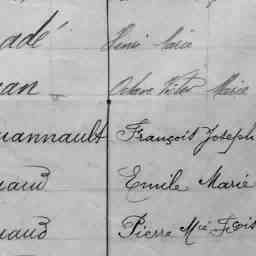 adé Henri Marie
an Octave Victor Marie
uannault François Joseph
uaud Emile Marie
uaud Pierre Mie Fçois